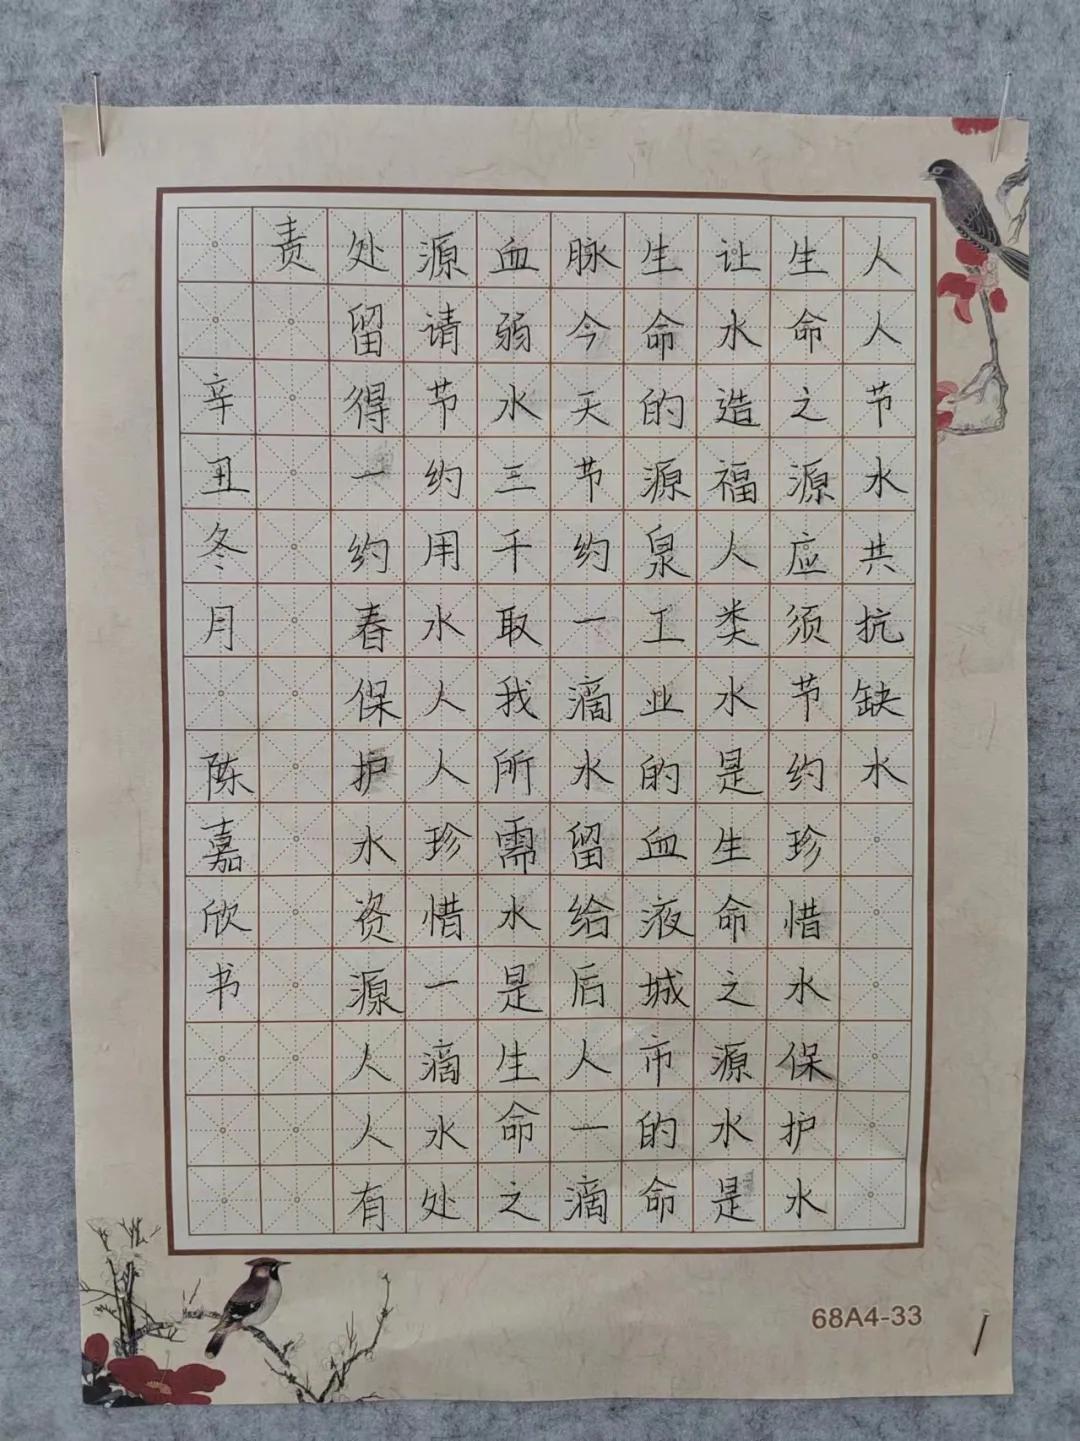 人人节水共抗缺水
生命之源应须节约珍惜水保护水
让水造福人类水是生命之源水是
生命的源泉工业的血液城市的命
脉今天节约一滴水留给后人一滴
血弱水三千取我所需水是生命之
源请节约用水人人珍惜一滴水处
处留得一约春保护水资源人人有
责
辛丑冬月 陈嘉欣书
68A4-33